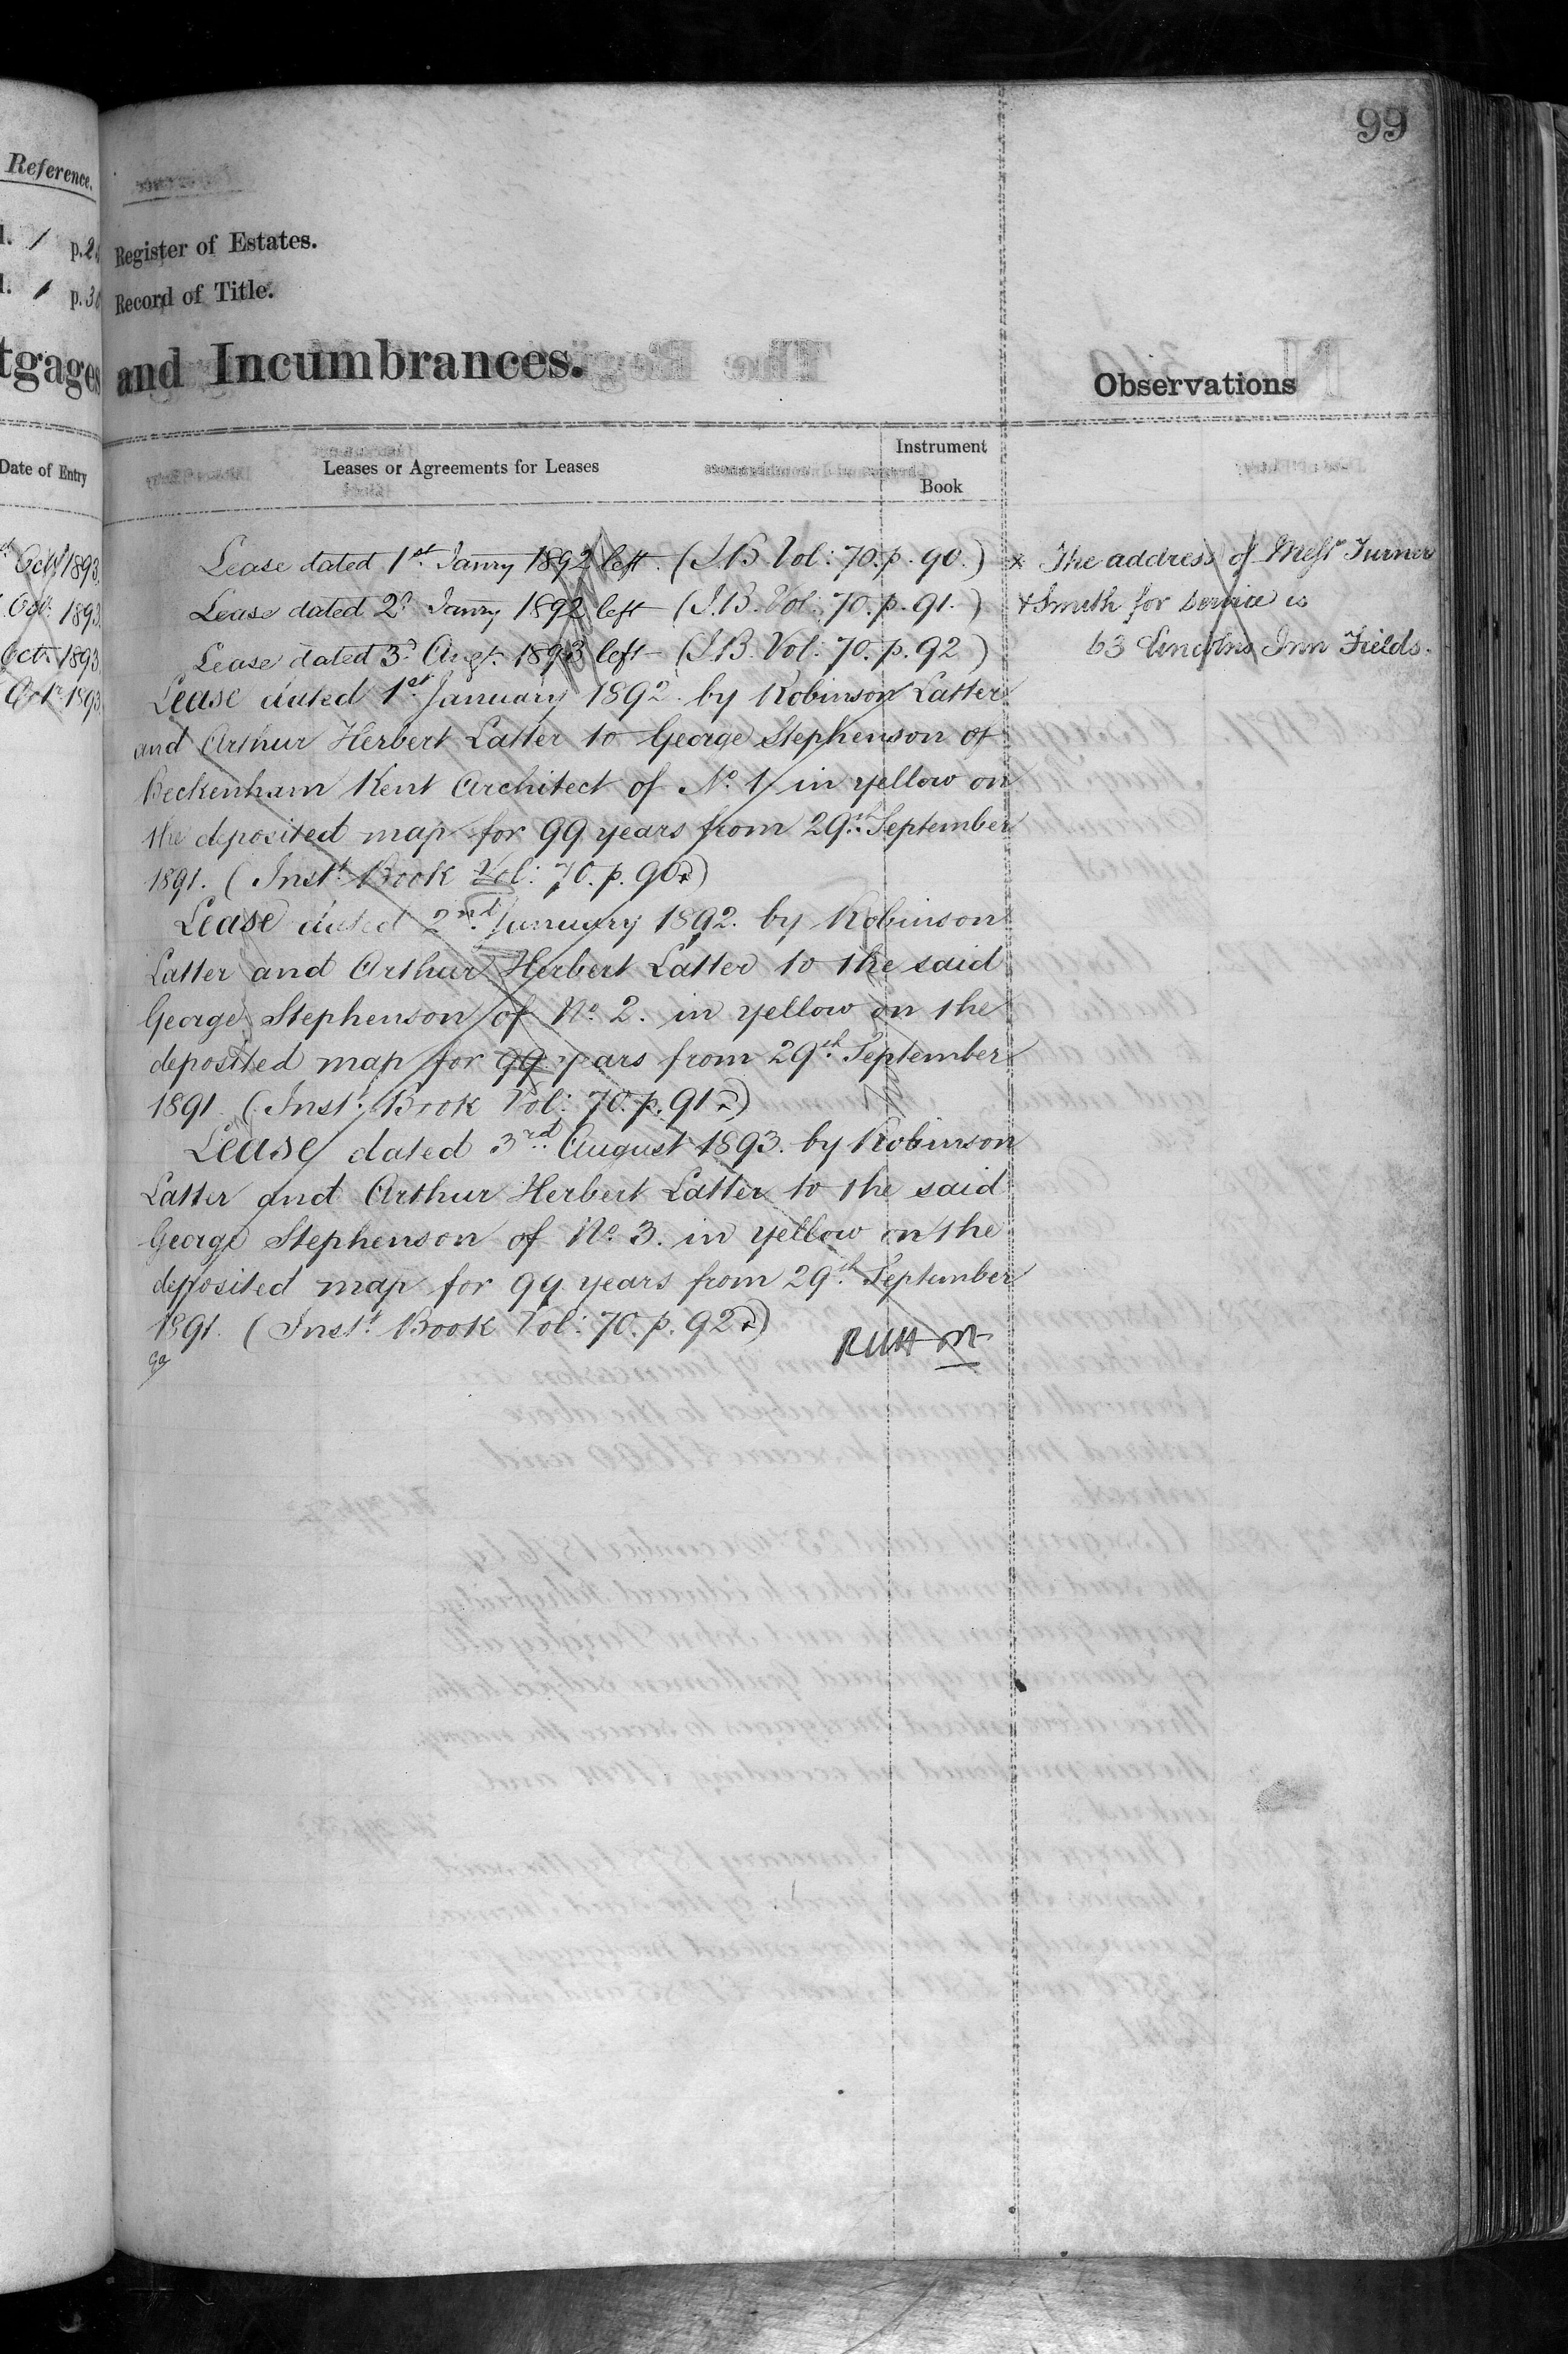 99
Reference.
p.2
p.30
Register of Estates.
Record of Title.
tgages
and Incumbrances.
Observations
Date of Entry
Leases or Agreements for Leases
Instrument
Book
Octr 1893.
Oct. 1893.
Octr. 1893.
Octr. 1893.
Lease dated 1st. Janry 1892 left. (I.B. Vol: 70. p. 90.)
Lease dated 2d. Janry 1892 left (I.B. Vol: 70. p. 91.)
Lease dated 3d. Augt. 1893 left (I.B. Vol: 70. p. 92)
x The address of Messrs Turner
& Smith for service is
63 Lincolns Inn Fields.
Lease dated 1st. January 1892. by Robinson Latter
and Arthur Herbert Latter to George Stephenson of
Beckenham Kent Architect of No. 1. in yellow on
the deposited map for 99 years from 29th. September
1891. (Inst. Book Vol: 70. p. 90.)
Lease dated 2nd. January 1892. by Robinson
Latter and Arthur Herbert Latter to the said
George Stephenson of No. 2. in yellow on the
deposited map for 99 years from 29th. September
1891. (Inst. Book Vol: 70. p. 91.)
Lease dated 3rd. August 1893. by Robinson
Latter and Arthur Herbert Latter to the said
George Stephenson of No. 3. in yellow on the
deposited map for 99 years from 29th. September
1891. (Inst. Book Vol: 70. p. 92.)